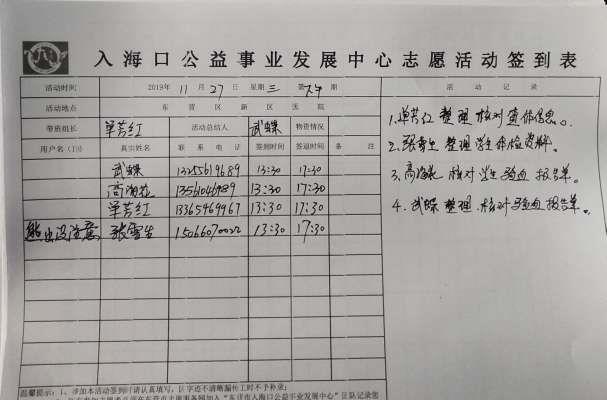 入海口公益事业发展中心志愿活动签到表
活动时间 2019年 11月 27日 星期三 第 期 活动记录
活动地点 东营区新区医院
带班组长 单芳红 活动总结人 武蝶 物资情况
用户名(ID) 真实姓名 联系电话 签到时间 签退时间 备注
武蝶 13255619689 13:30 17:30
13:30 17:30
单芳红 13365469967 13:30 17:30
熊出没注意 张雪生 15066070022 13:30 17:30
1.单芳红 整理 核对 查体信息。
2.张雪生 整理 学生体检资料。
3. 核对 学生 验血 报告单。
4.武蝶 整理、核对 验血报告单。
温馨提示:1、参加本活动签到请认真填写,因字迹不清晰漏传工时不予补录;